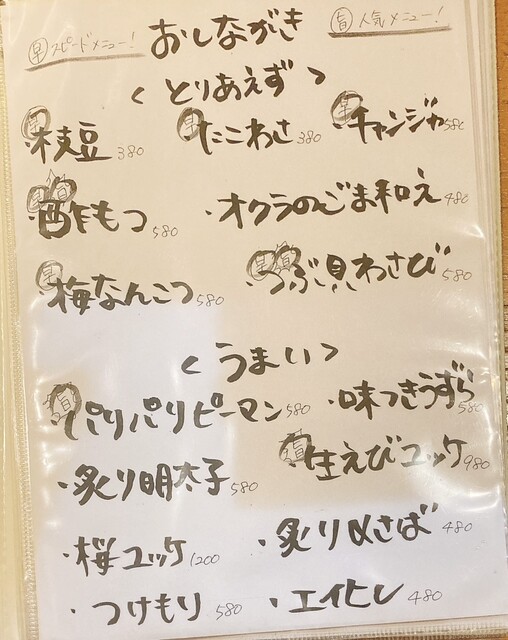 早 スピードメニュー! おしながき 旬 人気メニュー!
< とりあえず >
早 枝豆 380 早 たこわさ 380 早 チャンジャ 580
早 旬 酢もつ 580 ・オクラのごま和え 480
早 梅なんこつ 580 早 旬 つぶ貝わさび 580
< うまい >
旬 パリパリピーマン 580 ・味つきうずら 580
・炙り明太子 580 旬 生えびユッケ 980
・桜ユッケ 1200 ・炙り〆さば 480
・つけもり 580 ・エイヒレ 480